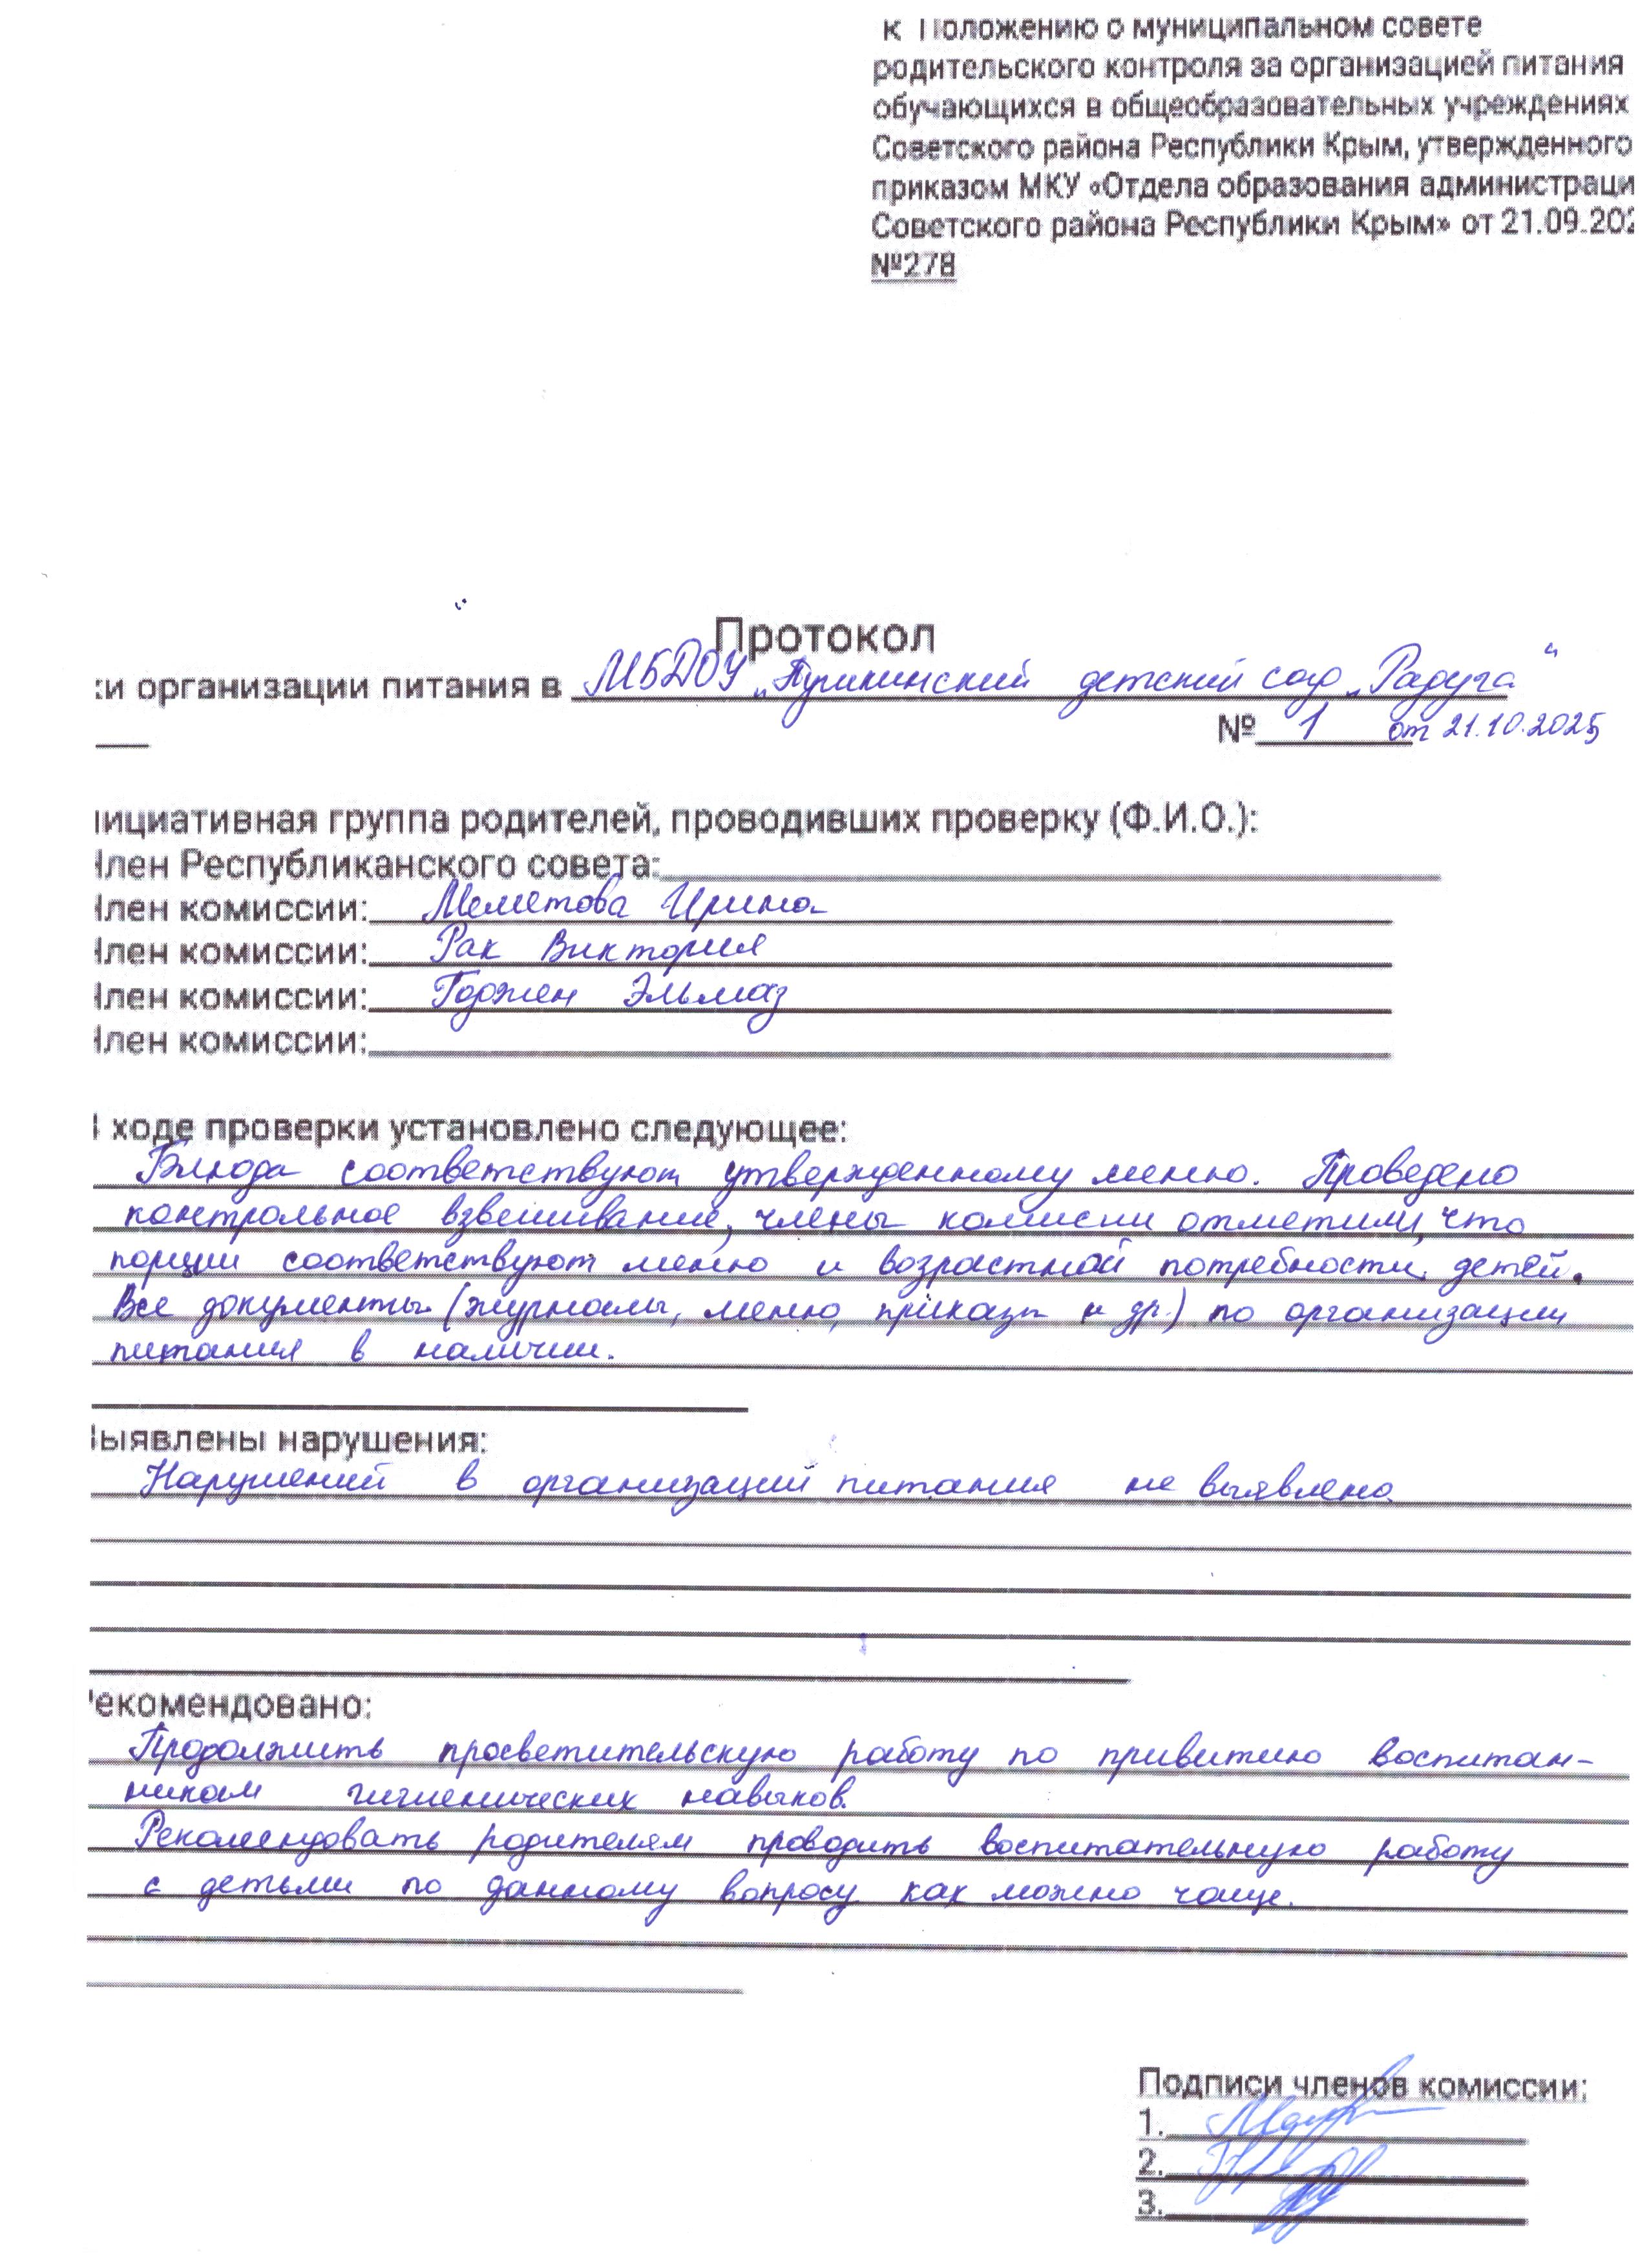 к Положению о муниципальном совете
родительского контроля за организацией питания
обучающихся в общеобразовательных учреждениях
Советского района Республики Крым, утвержденного
приказом МКУ «Отдела образования администраци
Советского района Республики Крым» от 21.09.202
№278
Протокол
ки организации питания в МБДОУ „Пушкинский детский сад „Радуга"
№ 1 от 21.10.2025
нициативная группа родителей, проводивших проверку (Ф.И.О.):
Член Республиканского совета:
Член комиссии: Меметова Ирина
Член комиссии: Рак Виктория
Член комиссии: Горжен Эльмаз
Член комиссии:
В ходе проверки установлено следующее:
Блюда соответствуют утвержденному меню. Проведено
контрольное взвешивание, члены комисии отметили, что
порции соответствуют меню и возрастной потребности детей.
Все документы (журналы, меню, приказы и др.) по организации
питания в наличии.
Выявлены нарушения:
Нарушений в организации питания не выявлено.
Рекомендовано:
Продолжить просветительскую работу по привитию воспитан-
никам гигиенических навыков.
Рекомендовать родителям проводить воспитательную работу
с детьми по данному вопросу как можно чаще.
Подписи членов комиссии:
1.
2.
3.